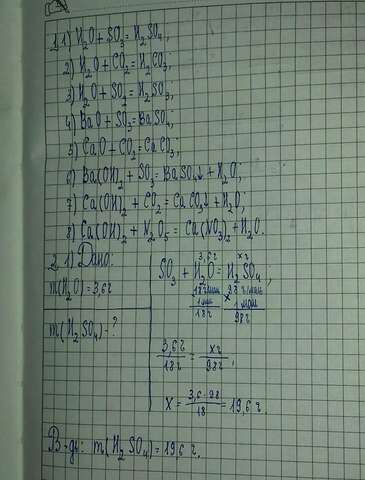 1. 1) H₂O + SO₃ = H₂SO₄;
2) H₂O + CO₂ = H₂CO₃;
3) H₂O + SO₂ = H₂SO₃;
4) BaO + SO₃ = BaSO₄;
5) CaO + CO₂ = CaCO₃;
6) Ba(OH)₂ + SO₃ = BaSO₄↓ + H₂O;
7) Ca(OH)₂ + CO₂ = CaCO₃↓ + H₂O;
8) Ca(OH)₂ + N₂O₅ = Ca(NO₃)₂ + H₂O.
2. 1) Дано:
m(H₂O) = 3,6 г
m(H₂SO₄) - ?
3,6 г x г
SO₃ + H₂O = H₂SO₄;
18 г/моль 98 г/моль
1 моль × 1 моль
18 г 98 г
3,6 г / 18 г = x г / 98 г;
x = 3,6 · 98 / 18 = 19,6 г.
В-дь: m(H₂SO₄) = 19,6 г.